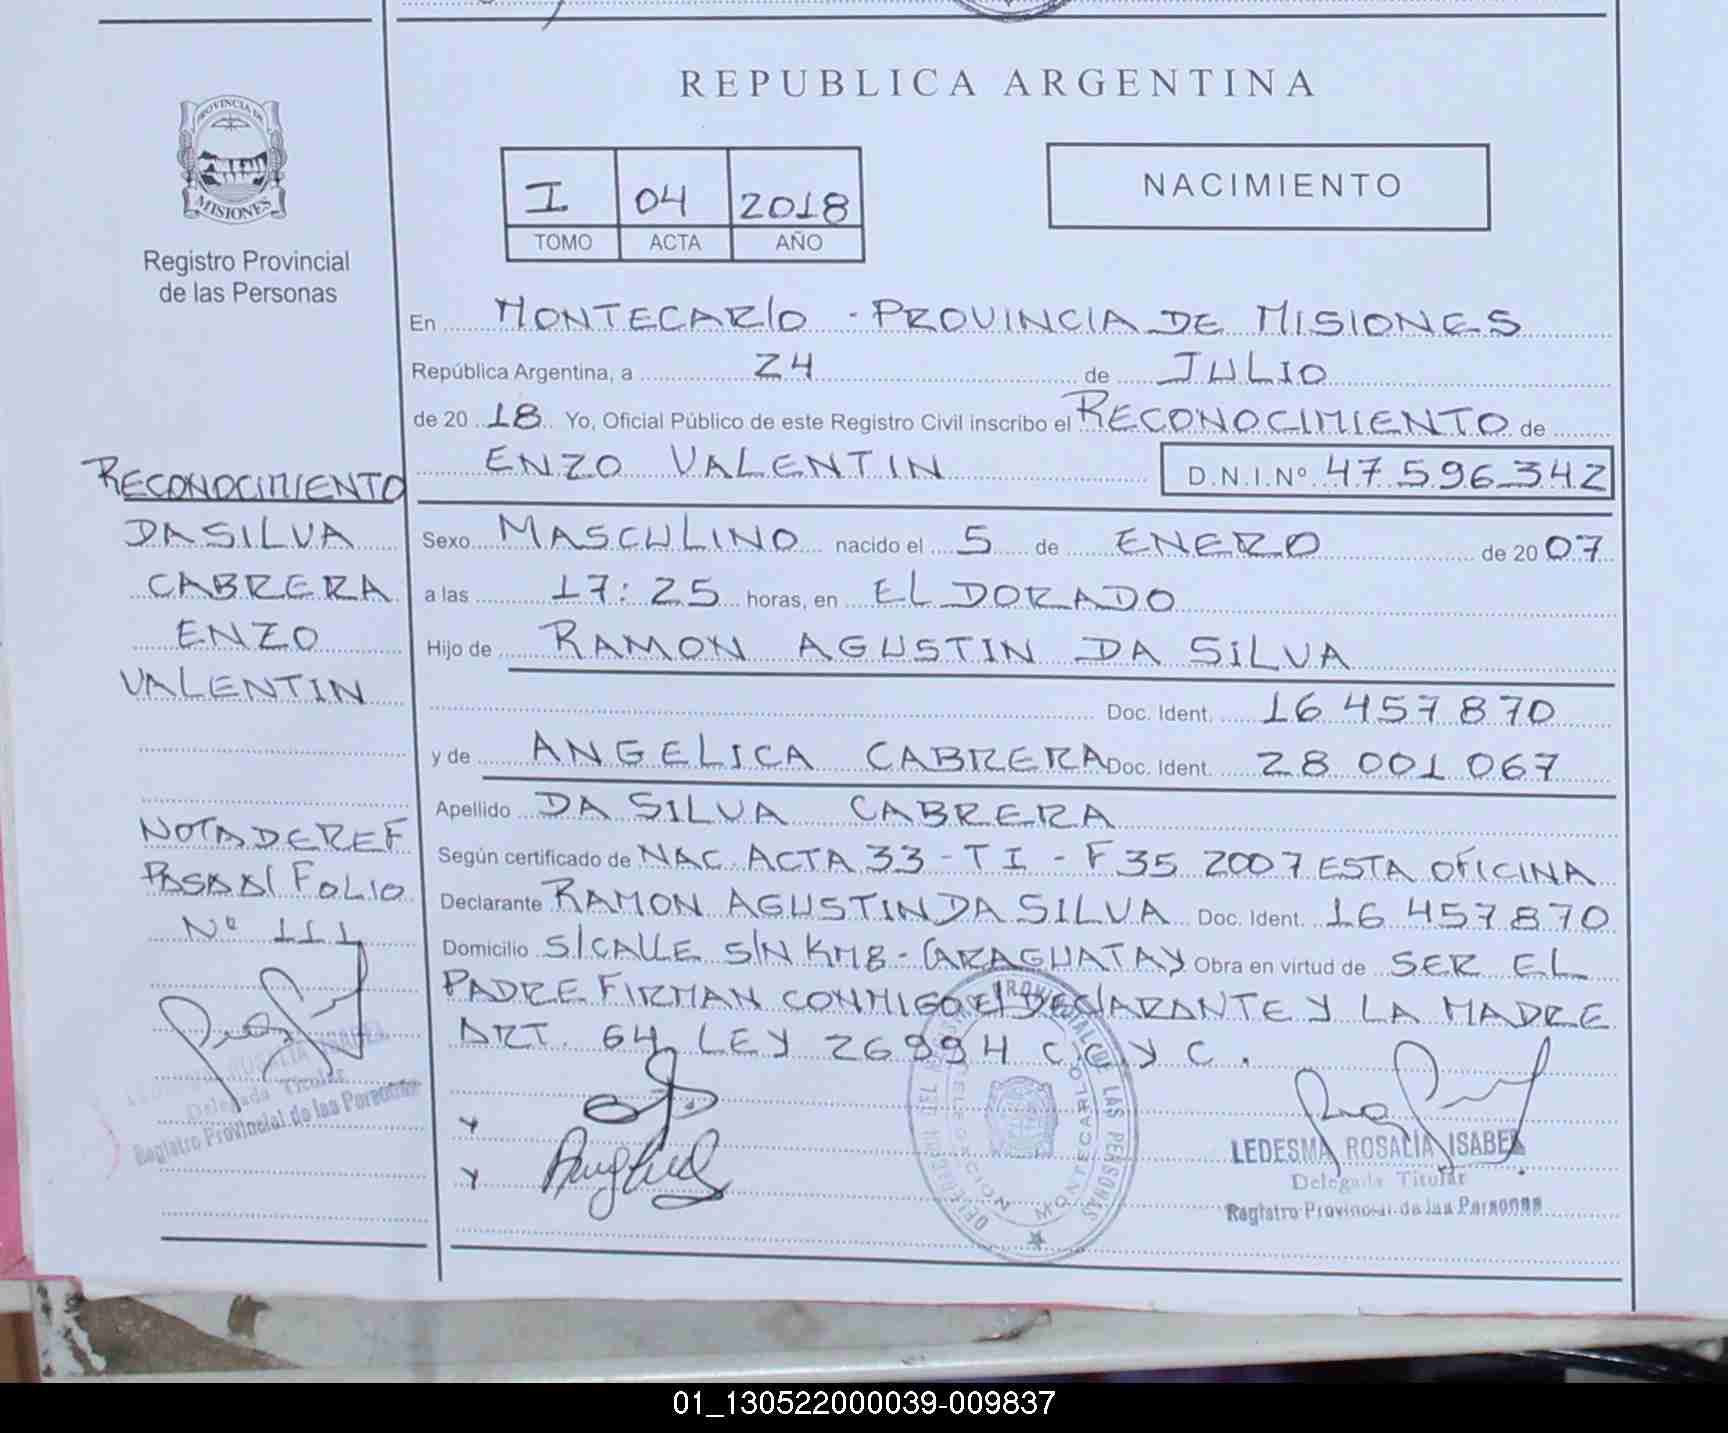 REPUBLICA ARGENTINA
PROVINCIA DE
MISIONES
Registro Provincial
de las Personas
I 04 2018
TOMO ACTA AÑO
NACIMIENTO
En MONTECARlO - PROVINCIA DE MISIONES
República Argentina, a 24 de JULIO
de 20 18 Yo, Oficial Público de este Registro Civil inscribo el RECONOCIMIENTO de
ENZO VALENTIN D.N.I.Nº 47 596 342
Sexo MASCULINO nacido el 5 de ENERO de 20 07
a las 17:25 horas, en EL DORADO
Hijo de RAMON AGUSTIN DA SILVA
Doc. Ident. 16 457 870
y de ANGELICA CABRERA Doc. Ident. 28 001 067
Apellido DA SILVA CABRERA
Según certificado de NAC. ACTA 33 - T I - F 35 2007 ESTA OFICINA
Declarante RAMON AGUSTIN DA SILVA Doc. Ident. 16 457 870
Domicilio S/CALLE S/N KM8 - CARAGUATAY Obra en virtud de SER EL
PADRE FIRMAN CONMIGO El DEClARANTE Y LA MADRE
ART. 64 LEY 26994 C.C. Y C.
RECONOCIMIENTO
DA SILVA
CABRERA
ENZO
VALENTIN
NOTA DE REF
PASA Al FOLIO
Nº 111
Delegada Titular
Registro Provincial de las Personas
DELEGACION MONTECARLO
LEDESMA ROSALIA ISABEL
Delegada Titular
Registro Provincial de las Personas
01_130522000039-009837